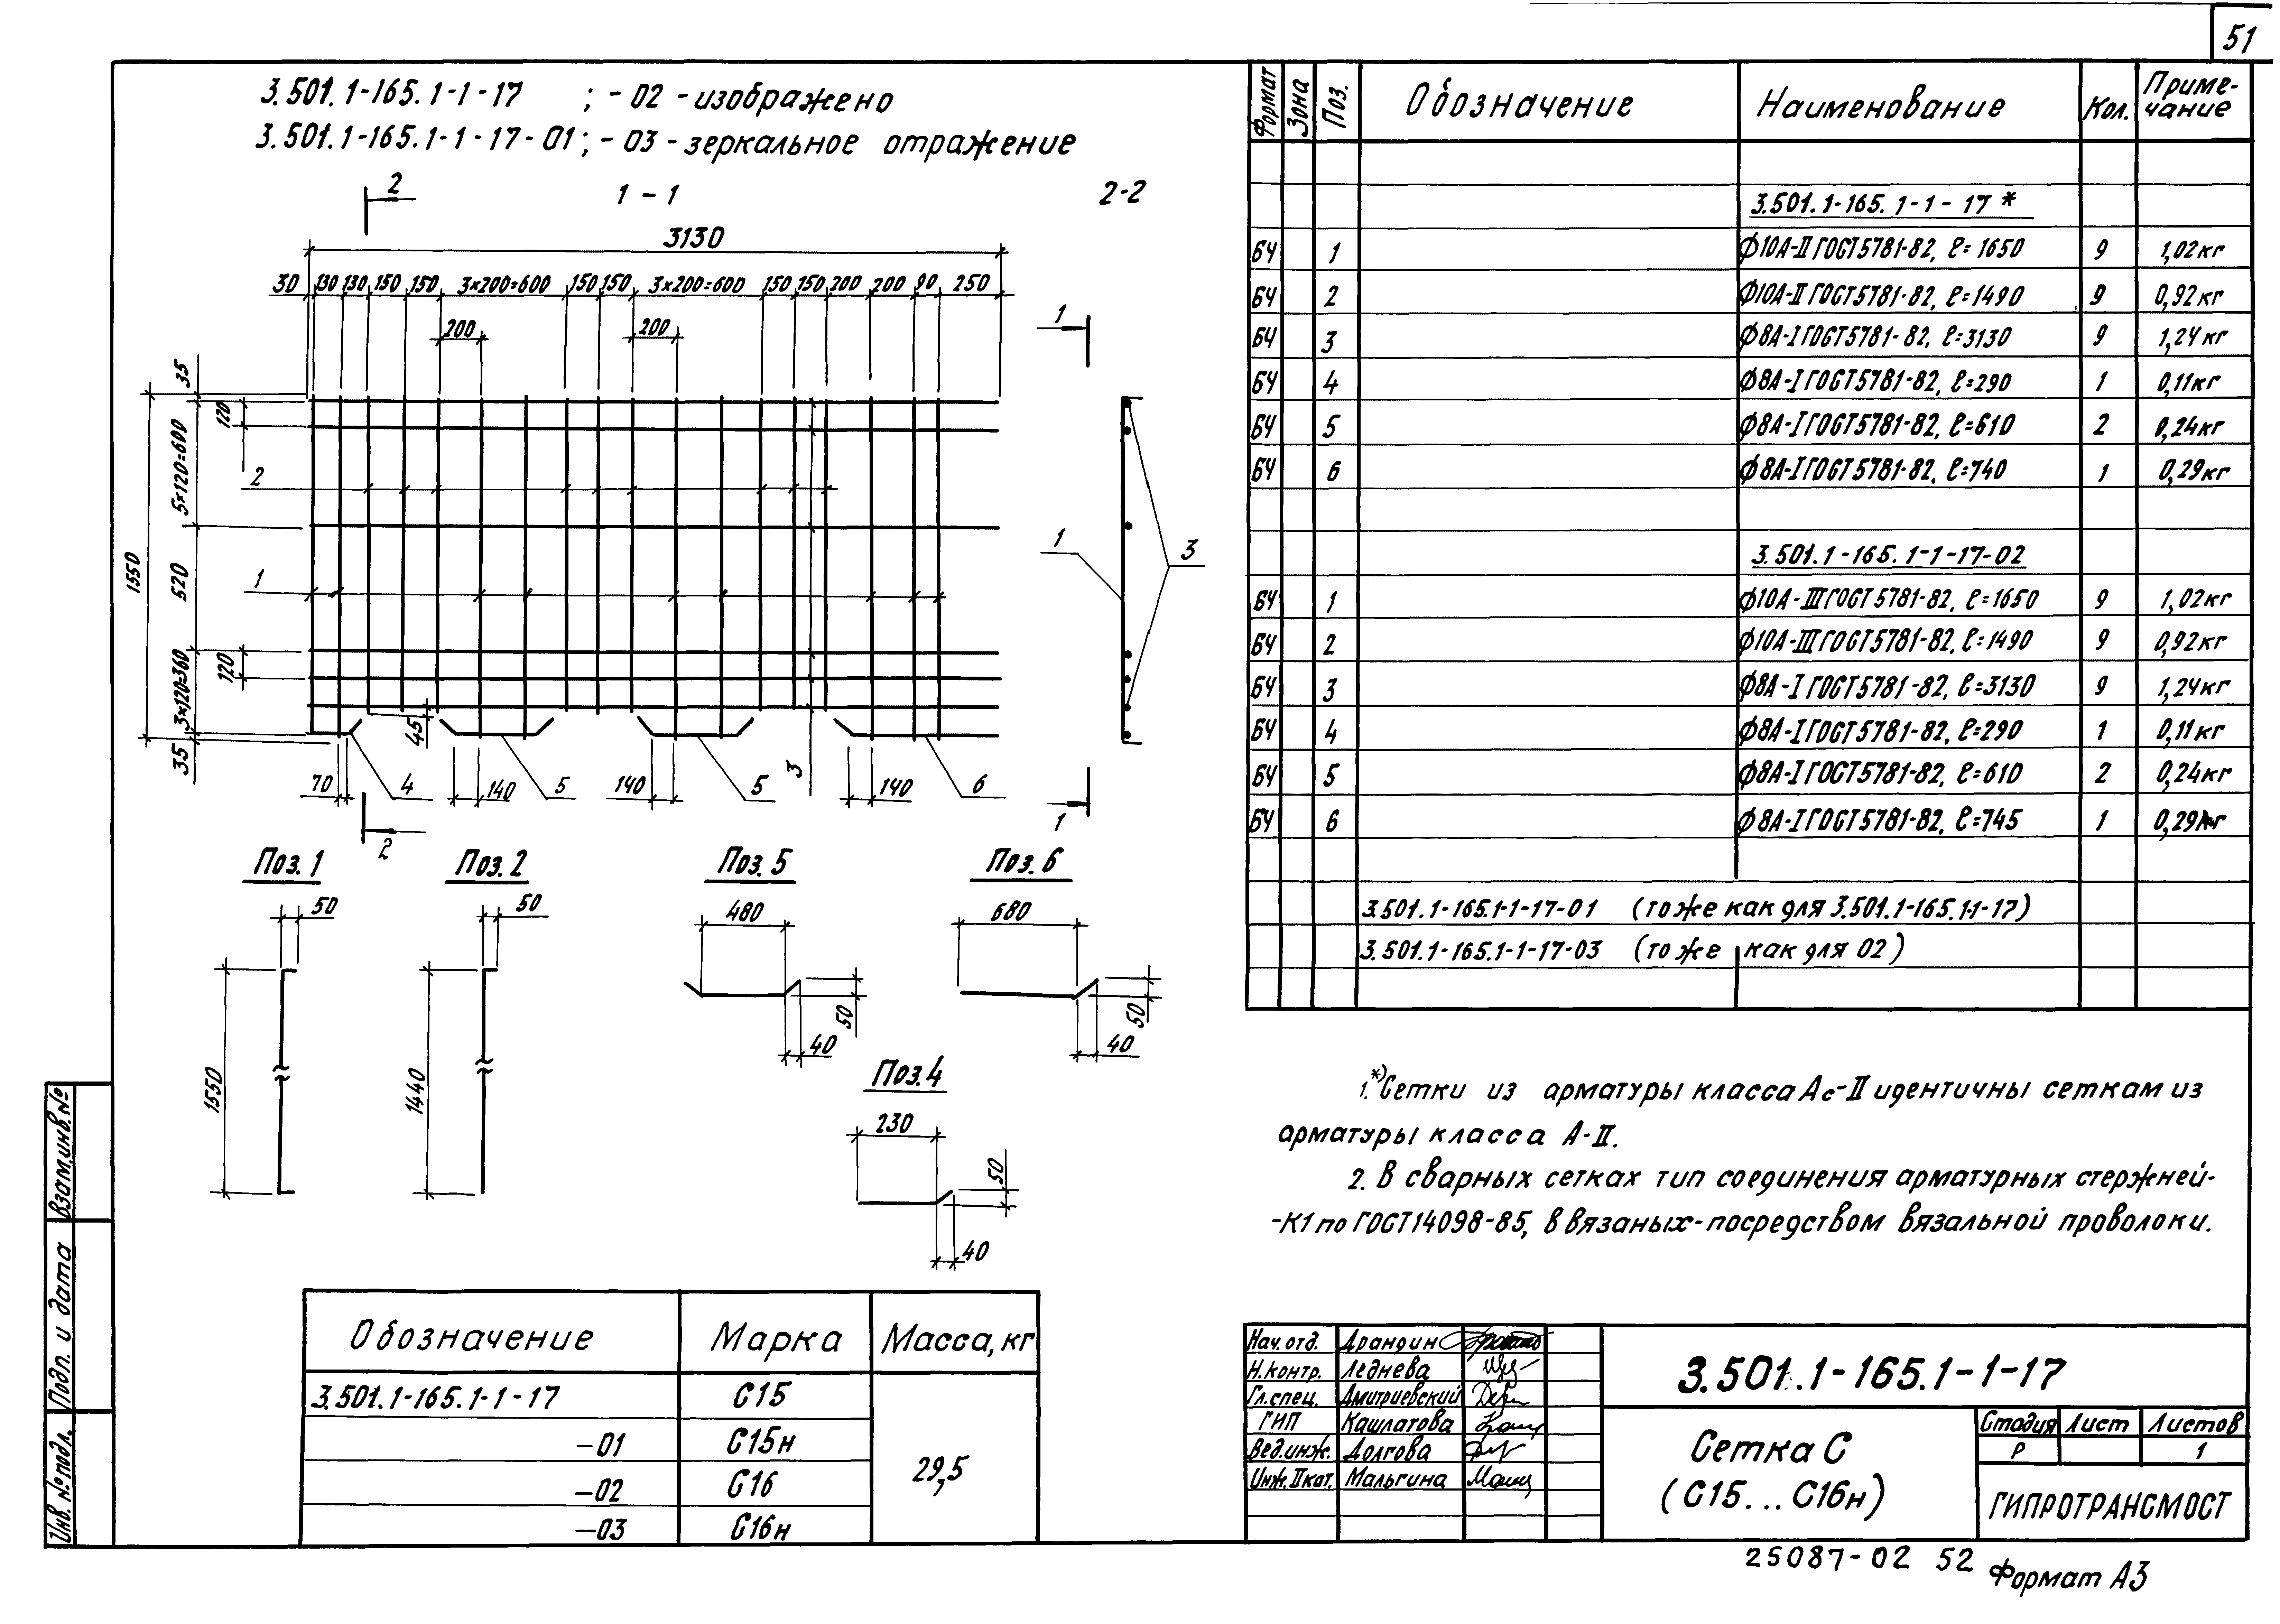 51
3.501.1-165.1-1-17 ; -02 -изображено
3.501.1-165.1-1-17-01; -03 -зеркальное отражение
2 1-1 2-2
3130
30 130 130 150 150 3×200=600 150 150 3×200=600 150 150 200 200 90 250
200 200
1
35
120
5×120=600
2
1550
520
1
120
3×120=360
35
45
1 3
70 4 140 5 140 5 3 140 6
2
1
Поз.1 Поз.2 Поз.5 Поз.6
50 50 480 680
1550 1440 50 40 50 40
Поз.4
230
50
40
Обозначение Марка Масса, кг
3.501.1-165.1-1-17 С15
-01 С15н
-02 С16
-03 С16н
29,5
Формат Зона Поз. Обозначение Наименование Кол. Приме-
чание
3.501.1-165.1-1-17 *
БЧ 1 Ф10А-II ГОСТ5781-82, ℓ=1650 9 1,02кг
БЧ 2 Ф10А-II ГОСТ5781-82, ℓ=1490 9 0,92кг
БЧ 3 Ф8А-I ГОСТ5781-82, ℓ=3130 9 1,24кг
БЧ 4 Ф8А-I ГОСТ5781-82, ℓ=290 1 0,11кг
БЧ 5 Ф8А-I ГОСТ5781-82, ℓ=610 2 0,24кг
БЧ 6 Ф8А-I ГОСТ5781-82, ℓ=740 1 0,29кг
3.501.1-165.1-1-17-02
БЧ 1 Ф10А-III ГОСТ5781-82, ℓ=1650 9 1,02кг
БЧ 2 Ф10А-III ГОСТ5781-82, ℓ=1490 9 0,92кг
БЧ 3 Ф8А-I ГОСТ5781-82, ℓ=3130 9 1,24кг
БЧ 4 Ф8А-I ГОСТ5781-82, ℓ=290 1 0,11кг
БЧ 5 Ф8А-I ГОСТ5781-82, ℓ=610 2 0,24кг
БЧ 6 Ф8А-I ГОСТ5781-82, ℓ=745 1 0,29кг
3.501.1-165.1-1-17-01 (то же как для 3.501.1-165.1-1-17)
3.501.1-165.1-1-17-03 (то же как для 02)
1.*) Сетки из арматуры класса Ас-II идентичны сеткам из
арматуры класса А-II.
2. В сварных сетках тип соединения арматурных стержней-
-К1 по ГОСТ14098-85, в вязаных-посредством вязальной проволоки.
Нач. отд. Драндин
Н.контр. Леднева
Гл.спец. Дмитриевский
ГИП Кашлатова
Вед.инж. Долгова
Инж.IIкат. Мальгина
3.501.1-165.1-1-17
Сетка С
(С15...С16н)
Стадия Лист Листов
Р 1
ГИПРОТРАНСМОСТ
25087-02 52
Формат А3
Взам.инв.№
Подп. и дата
Инв. № подл.